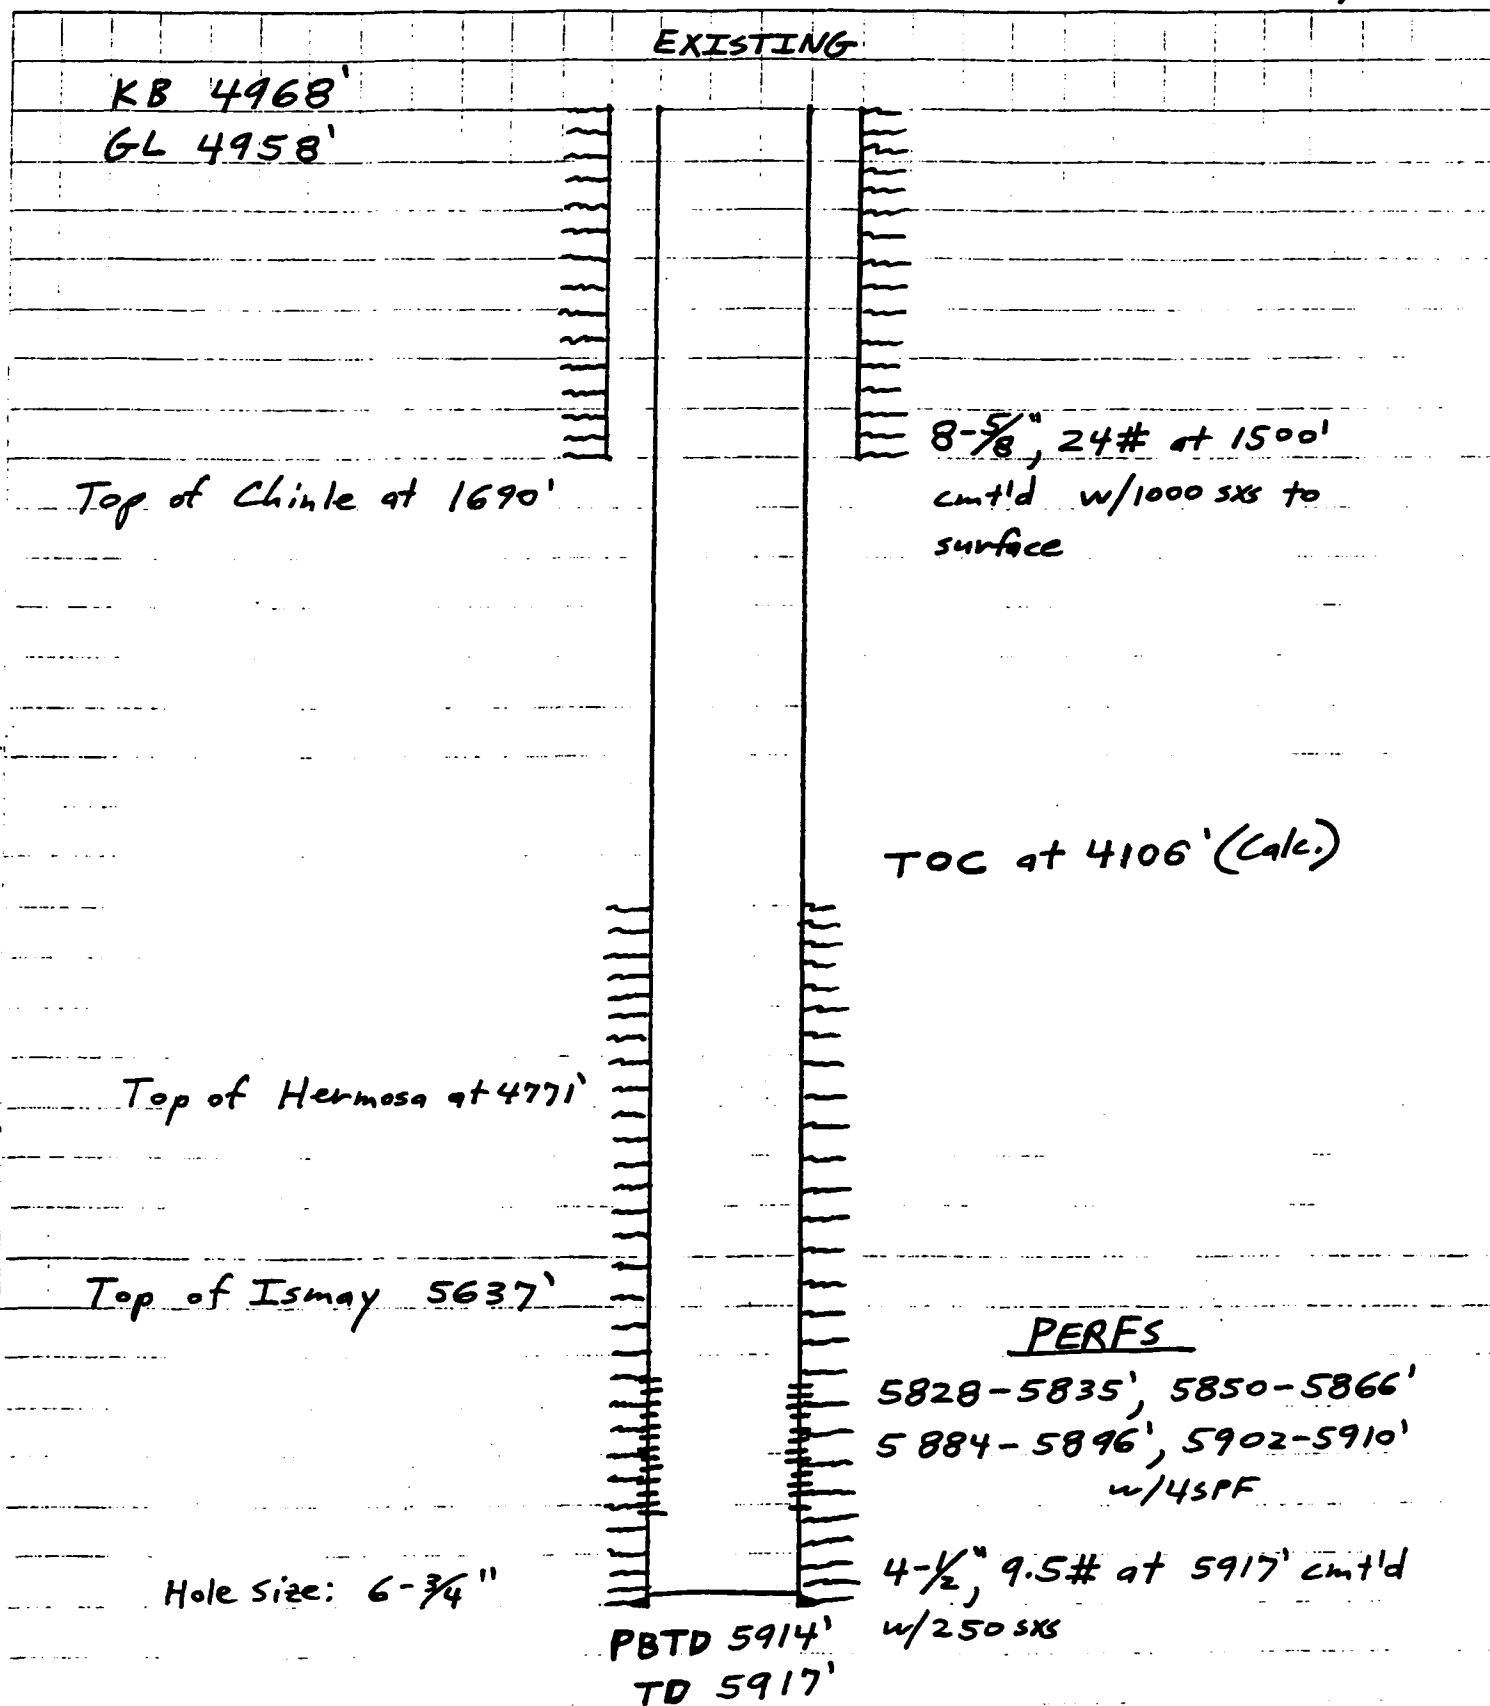 EXISTING
KB 4968'
GL 4958'
8-5/8", 24# at 1500'
cmt'd w/1000 sxs to
surface
Top of Chinle at 1690'
TOC at 4106' (Calc.)
Top of Hermosa at 4771'
Top of Ismay 5637'
PERFS
5828-5835', 5850-5866'
5884-5896', 5902-5910'
w/4SPF
4-1/2", 9.5# at 5917' cmt'd
w/250 sxs
Hole size: 6-3/4"
PBTD 5914'
TD 5917'